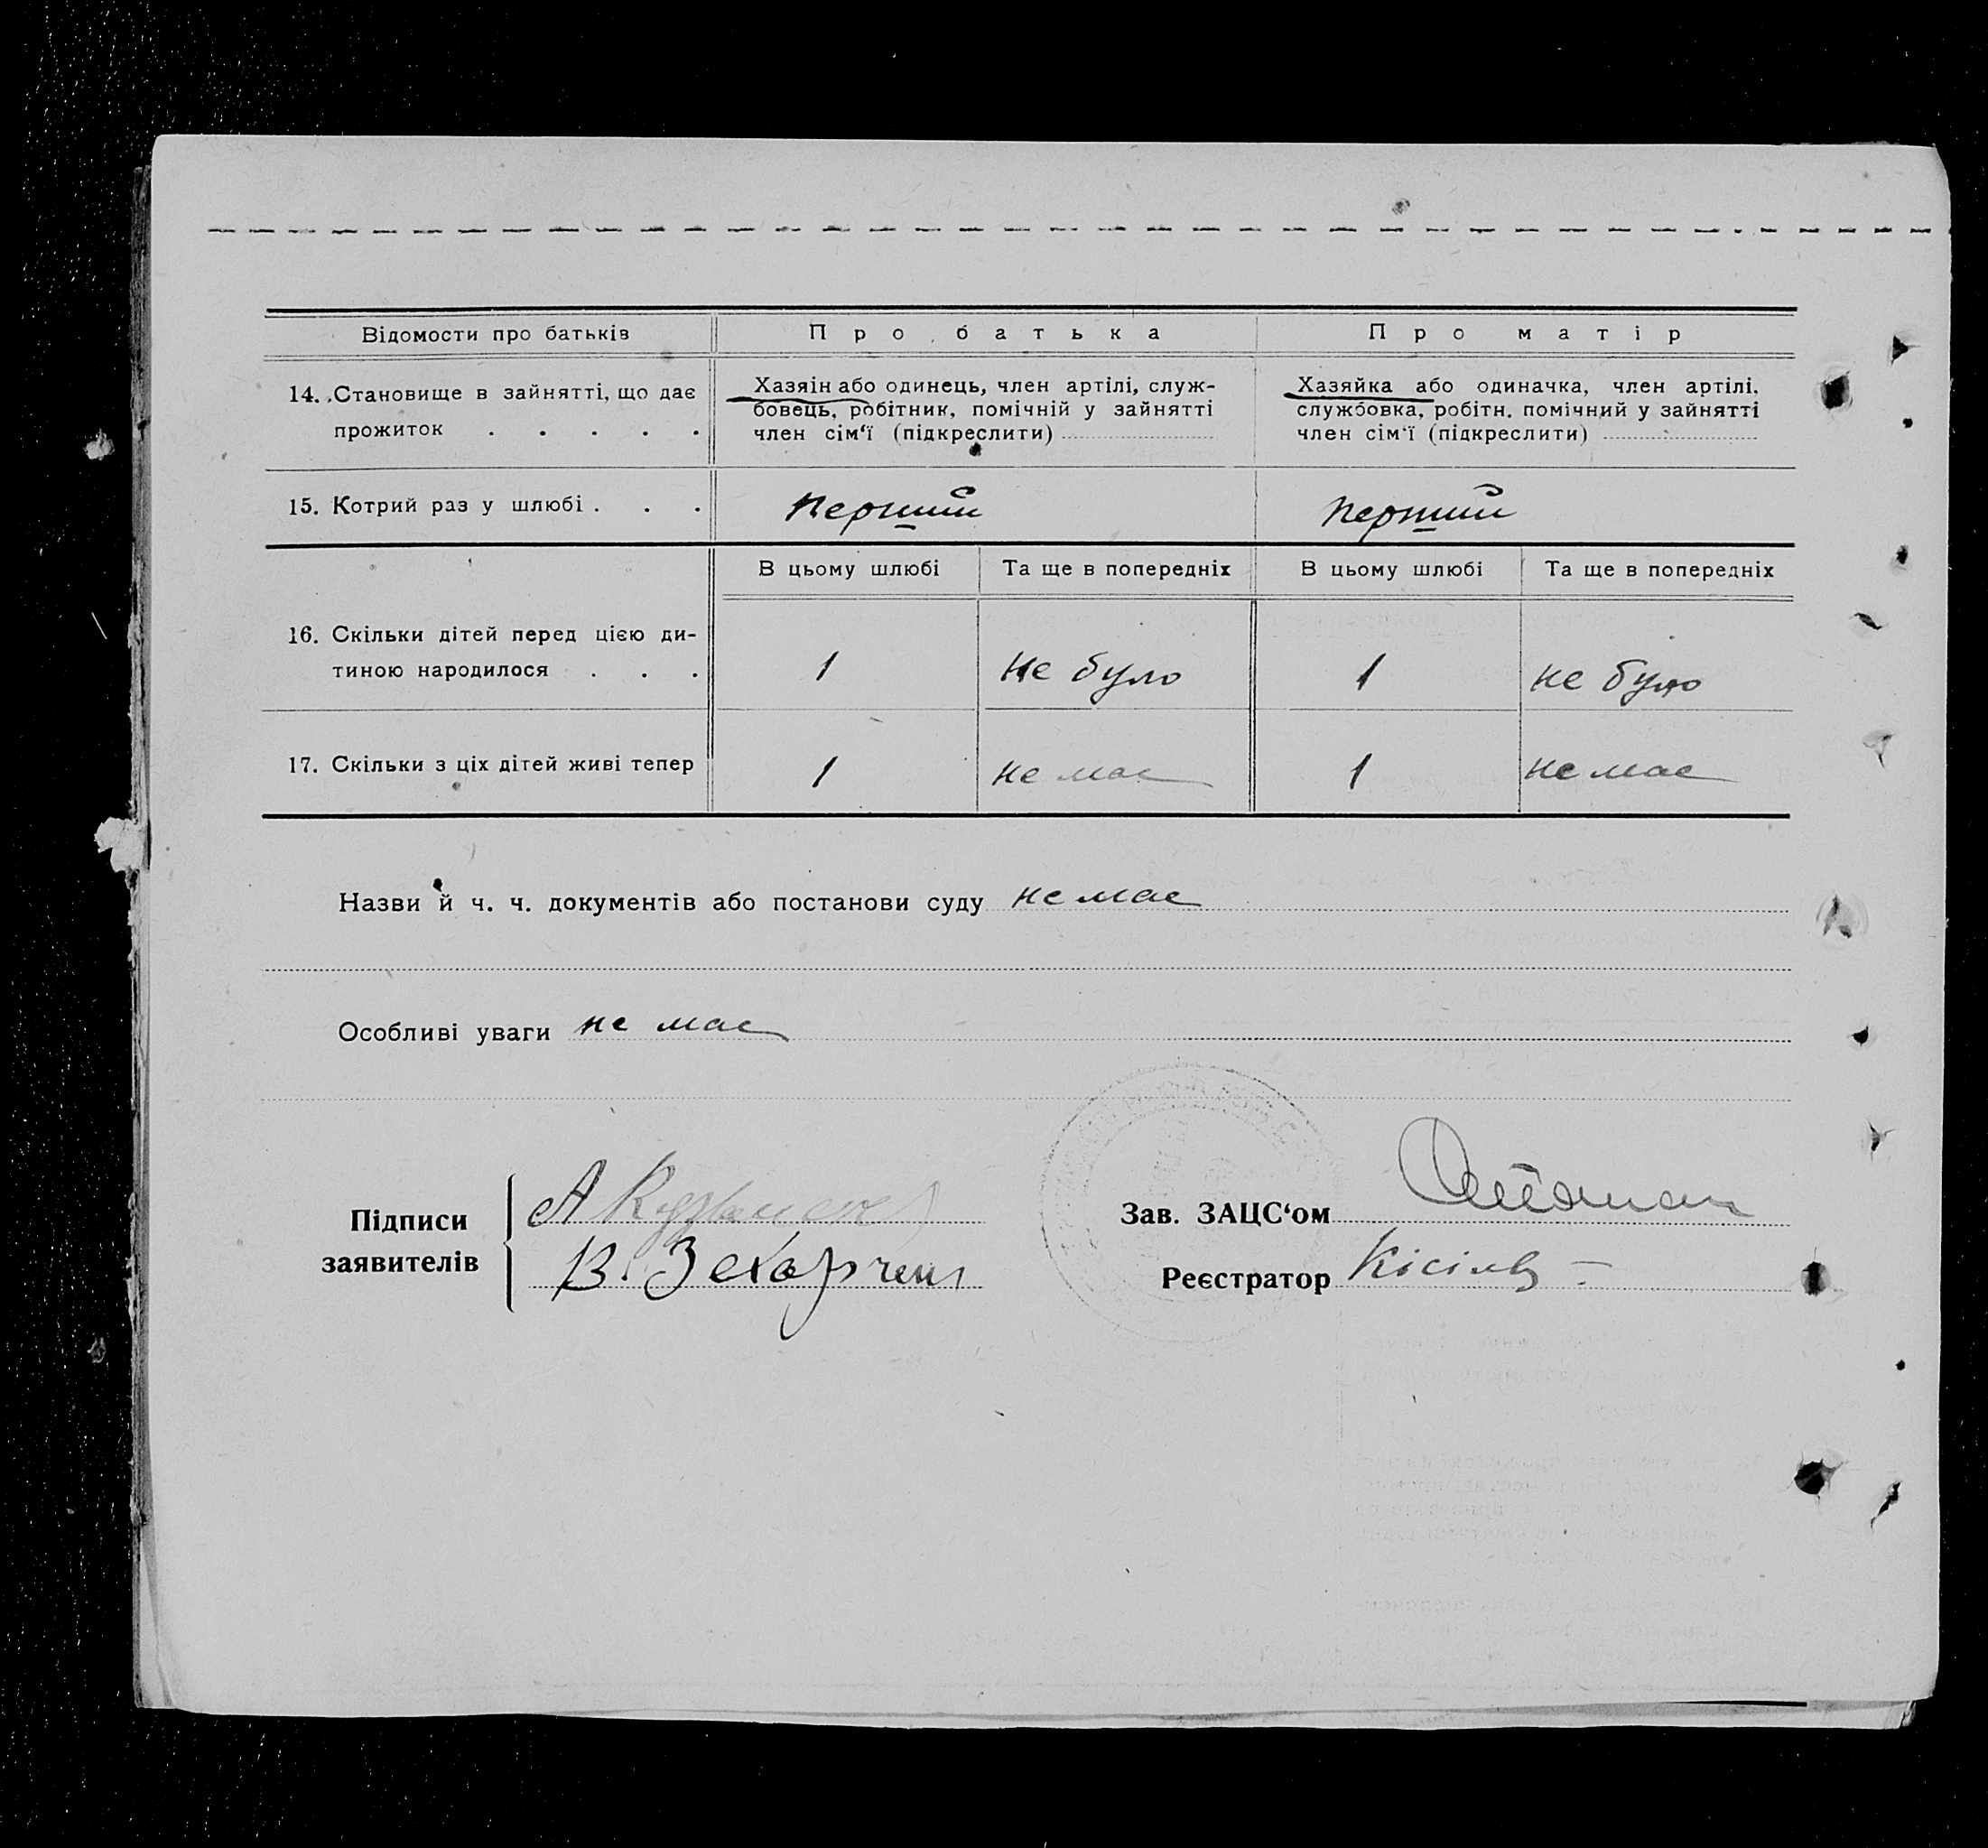 Відомости про батьків
Про батька
Про матір
14. Становище в зайнятті, що дає
прожиток . . . . .
Хазяін або одинець, член артілі, служ-
бовець, робітник, помічній у зайнятті
член сім‘ї (підкреслити)
Хазяйка або одиначка, член артілі,
службовка, робітн. помічний у зайнятті
член сім‘ї (підкреслити)
15. Котрий раз у шлюбі . . .
перший
перший
В цьому шлюбі
Та ще в попередніх
В цьому шлюбі
Та ще в попередніх
16. Скільки дітей перед цією ди-
тиною народилося . . .
1
не було
1
не було
17. Скільки з ціх дітей живі тепер
1
не має
1
не має
Назви й ч. ч. документів або постанови суду не має
Особливі уваги не має
Підписи
заявителів
А
В. Захарченко
Зав. ЗАЦС‘ом
Реєстратор